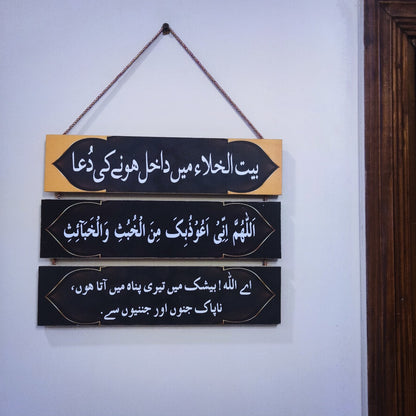 بیت الخلاء میں داخل ہونے کی دُعا
اَللّٰهُمَّ اِنِّیْ اَعُوْذُبِکَ مِنَ الْخُبُثِ وَالْخَبَآئِثِ
اے اللہ ! بیشک میں تیری پناہ میں آتا ہوں،
ناپاک جنوں اور جننیوں سے۔